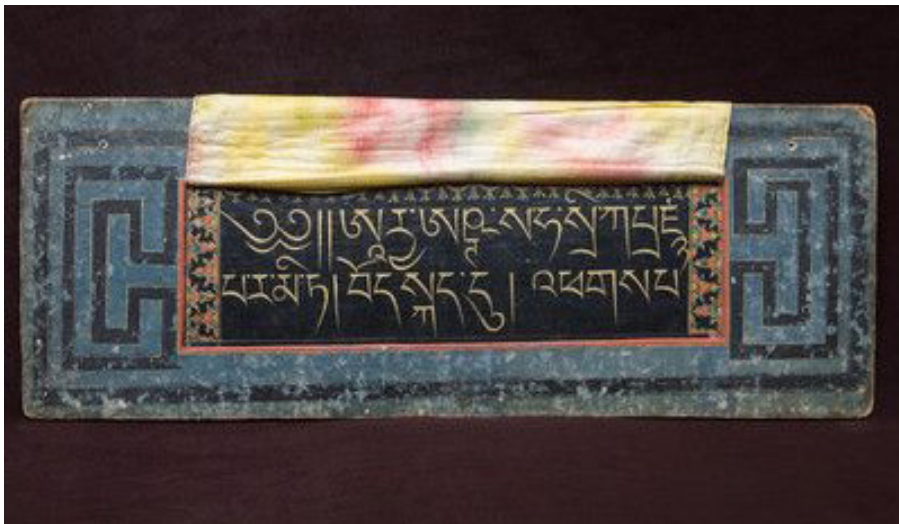 ༄༅།།ཨཱརྱ་ཨཥྚ་སཧསྲིཀཔྲཛྙཱ
པ་ར་མི་ཏ། བོད་སྐད་དུ། འཕགས་པ